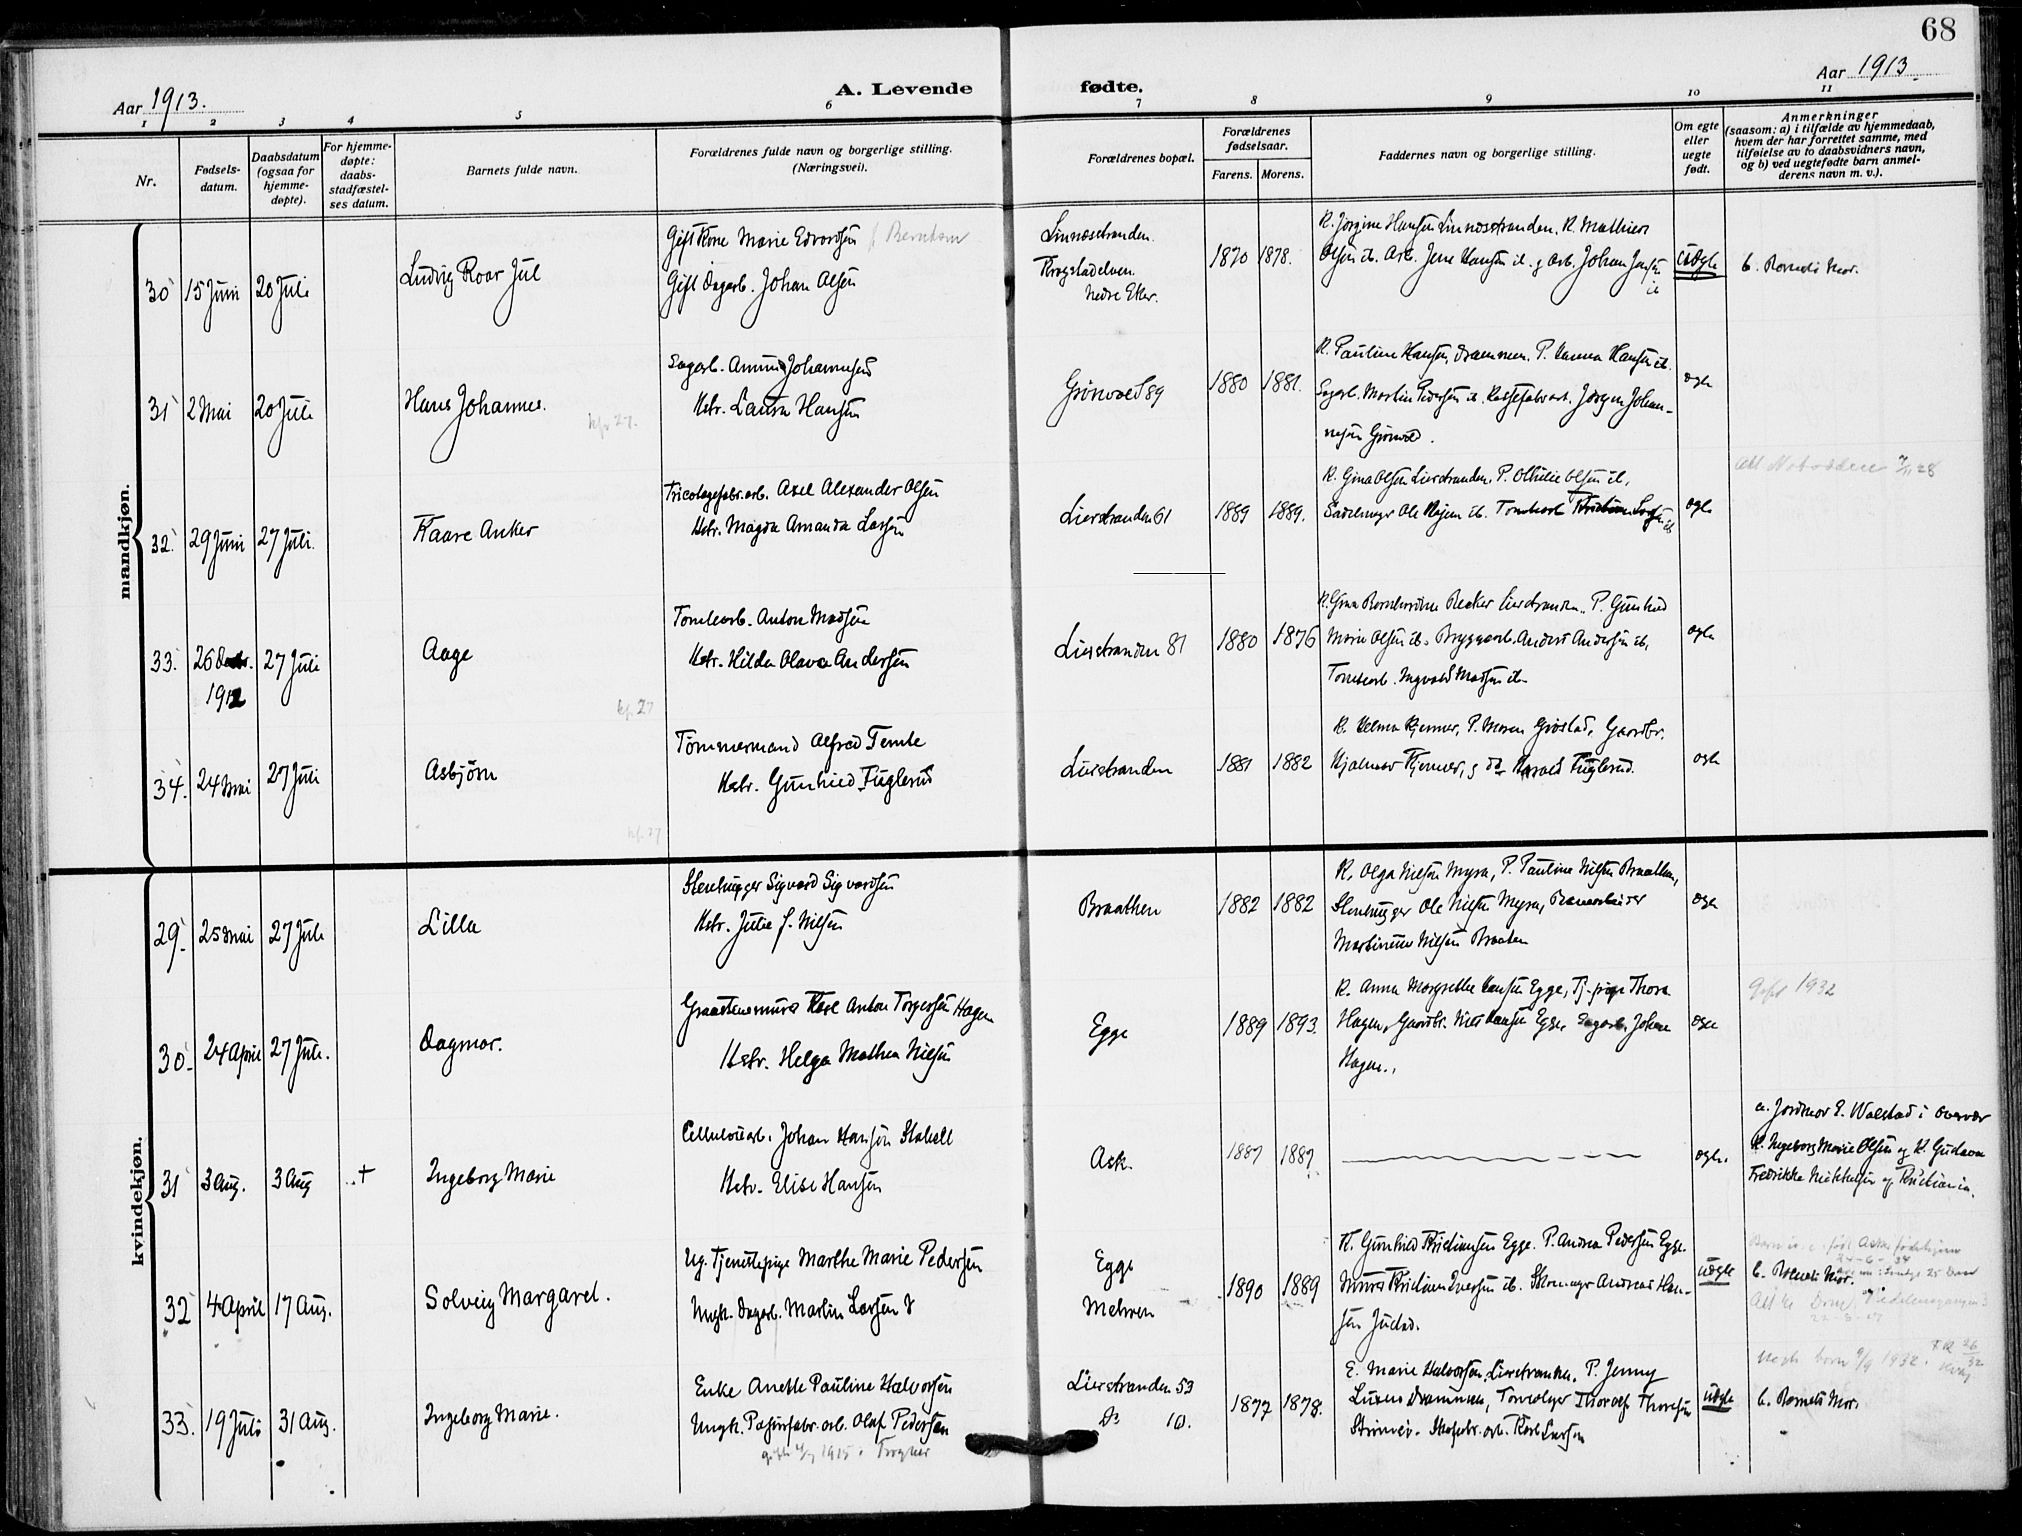 68
Aar 1913.
A. Levende
fødte.
Aar 1913.
1 2 3 4 5 6 7 8 9 10 11
Nr.
Fødsels-
datum.
Daabsdatum
(ogsaa for
hjemme-
døpte).
For hjemme-
døpte:
daabs-
stadfæstel-
ses datum.
Barnets fulde navn.
Forældrenes fulde navn og borgerlige stilling.
(Næringsvei).
Forældrenes bopæl.
Forældrenes
fødselsaar.
Farens. Morens.
Faddernes navn og borgerlige stilling.
Om egte
eller
uegte
født.
Anmerkninger
(saasom: a) i tilfælde av hjemmedaab,
hvem der har forrettet samme, med
tilføielse av to daabsvidners navn,
og b) ved uegtefødte barn anmel-
derens navn m. v.).
mandkjøn.
30 15 Juni 20 Juli
Ludvig Roar Jul
Gift Kone Marie Edvardsen
Gift Dagarb. Johan Olsen
Linnæsstranden.
Krogstadelven
Nedre Eker.
1870 1878.
K. Jørgine Hansen Linnesstranden, K. Mathien
Olsen ib. Arb. Jens Hansen ib. g Arb. Johan Jensen
ib
Uægte
b. Barnets Mor.
31 2 Mai 20 Juli
Hans Johannes.
kfr 27.
Sagarb. Amund Johannesen
Hstr. Laura Hansen
Grønvold 89
1880 1881.
K. Pauline Hansen, Drammen. P. Hanna Hansen ib.
Sagarb. Martin Pedersen ib. Jørgen Johan-
nesen Grønvold.
ægte
32. 29 Juni 27 Juli.
Kaare Anker
Tricotagefabr.arb. Axel Alexander Olsen
Hstr. Magda Amanda Larsen
Lierstranden 61
1889 1889.
K. Gina Olsen Lierstranden, P. Othilie Olsen ib,
Sadelmager Ole ib. Tomtearb. Kristian ib
ægte
att Notodden 28
33. 26 Decbr. 27 Juli
1912
Aage
kfr. 27
Tomtearb. Anton Madsen
Hstr. Hilda Olava Andersen
Lierstranden 81
1880 1876
K. Gina Becker Lierstranden, P. Gunhild
Marie Olsen ib. Bryggearb. Anders Andersen ib,
Tomtearb. Ingvald Madsen ib
ægte
34. 24 Mai 27 Juli
Asbjørn
kfr. 27
Tømmermand Alfred Temte
Hstr. Gunhild Fuglerud
Lierstranden
1881 1882
K. Helma Kjenner, P. Maren Grøstad, Gaardbr.
Hjalmar Kjenner, g do Harald Fuglerud.
ægte
kvindekjøn.
29. 25 Mai 27 Juli
Lilla
Stenhugger Sigvard Sigvardsen
Hstr. Julie f. Nilsen
Braathen
1882 1882
K. Olga Nilsen Myra, P. Pauline Nilsen Braathen,
Stenhugger Ole Nilsen Myra,
Martinius Nilsen Braaten
ægte
30. 24 April 27 Juli.
Dagmar.
Graastensmurer Karl Anton Torgersen Hagen
Hstr. Helga Mathea Nilsen
Egge
1889 1893.
K. Anna Margrethe Hansen Egge, Tj.pige Thora
Hagen, Gaardbr. Nils Hansen Egge, Sagarb. Johan
Hagen.
ægte
Gift 1932
31 3 Aug. 3 Aug +
Ingeborg Marie
Cellulosearb. Johan Hansen Stabell
Hstr. Elise Hansen
Ask.
1887 1889
ægte.
a. Jordmor E. Walstad i overvær
K. Ingeborg Marie Olsen og K. Gudava
Fredrikke Mikkelsen og Kristiania.
32 4 April 17 Aug.
Solveig Margaret.
Ug. Tjenestepige Marthe Marie Pedersen
Ungk. Dagarb. Martin Larsen
Egge
Mehren
1890 1889
K. Gunhild Kristiansen Egge. P. Andrea Pedersen Egge.
Murer Kristian Iversen ib. Skomager Andreas Han-
sen Justad.
uægte
b. Barnets Mor.
33. 19 Juli 31 Aug.
Ingeborg Marie.
Enke Anette Pauline Halvorsen
Ungk. Papirfabr.arb. Olaf Pedersen
gift 1915 i Frogner
Lierstranden 53
Do 10.
1877 1878.
E. Marie Halvorsen, Lierstranden, P. Jenny
Larsen Drammen, Thorolf Thorsen
Karl Larsen
uægte
b. Barnets Mor.
1932.